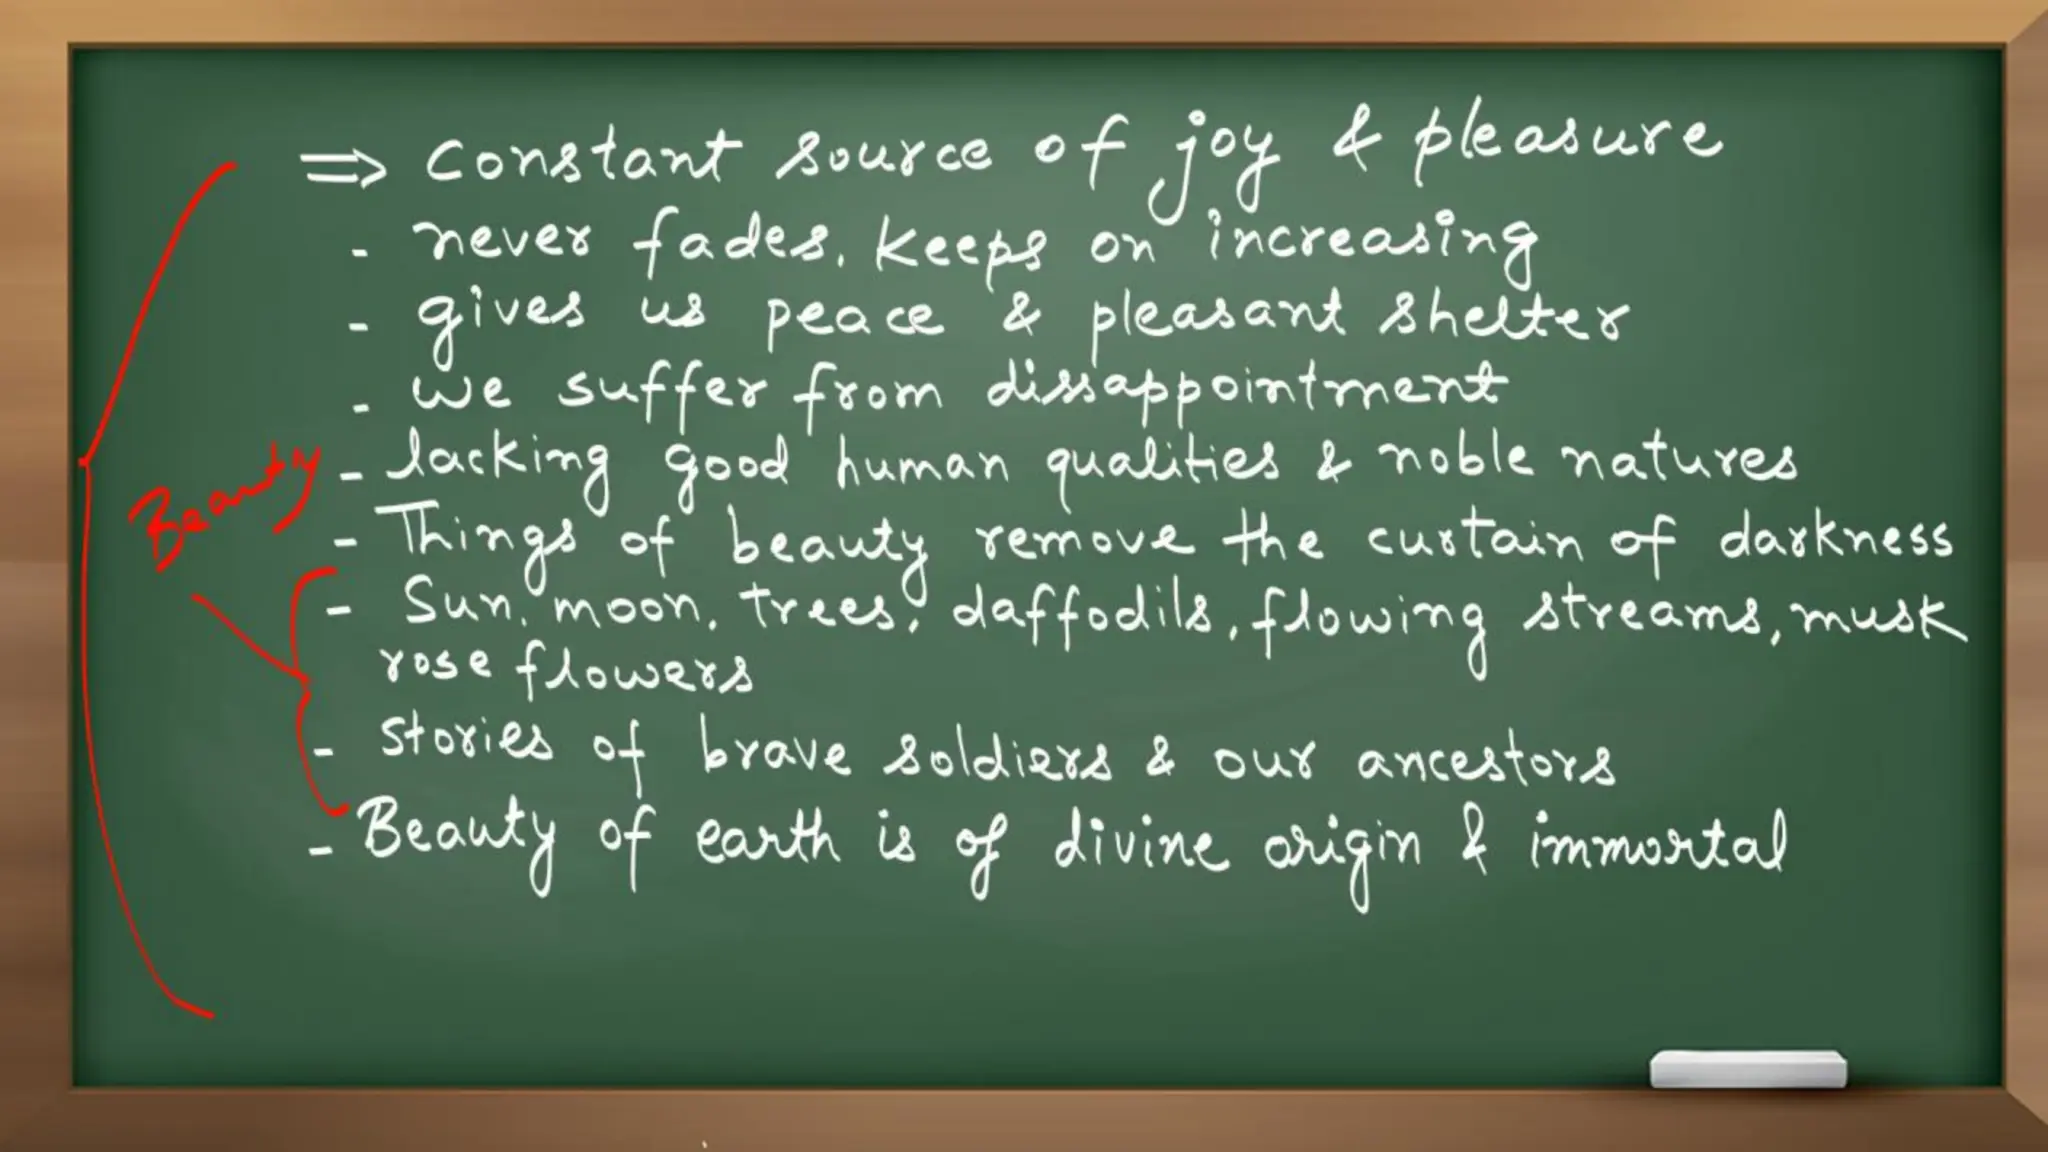 ⇒ Constant source of joy & pleasure
- never fades. keeps on increasing
- gives us peace & pleasant shelter
- we suffer from dissappointment
Beauty
- lacking good human qualities & noble natures
- Things of beauty remove the curtain of darkness
- Sun, moon, trees, daffodils, flowing streams, musk
rose flowers
- stories of brave soldiers & our ancestors
- Beauty of earth is of divine origin & immortal